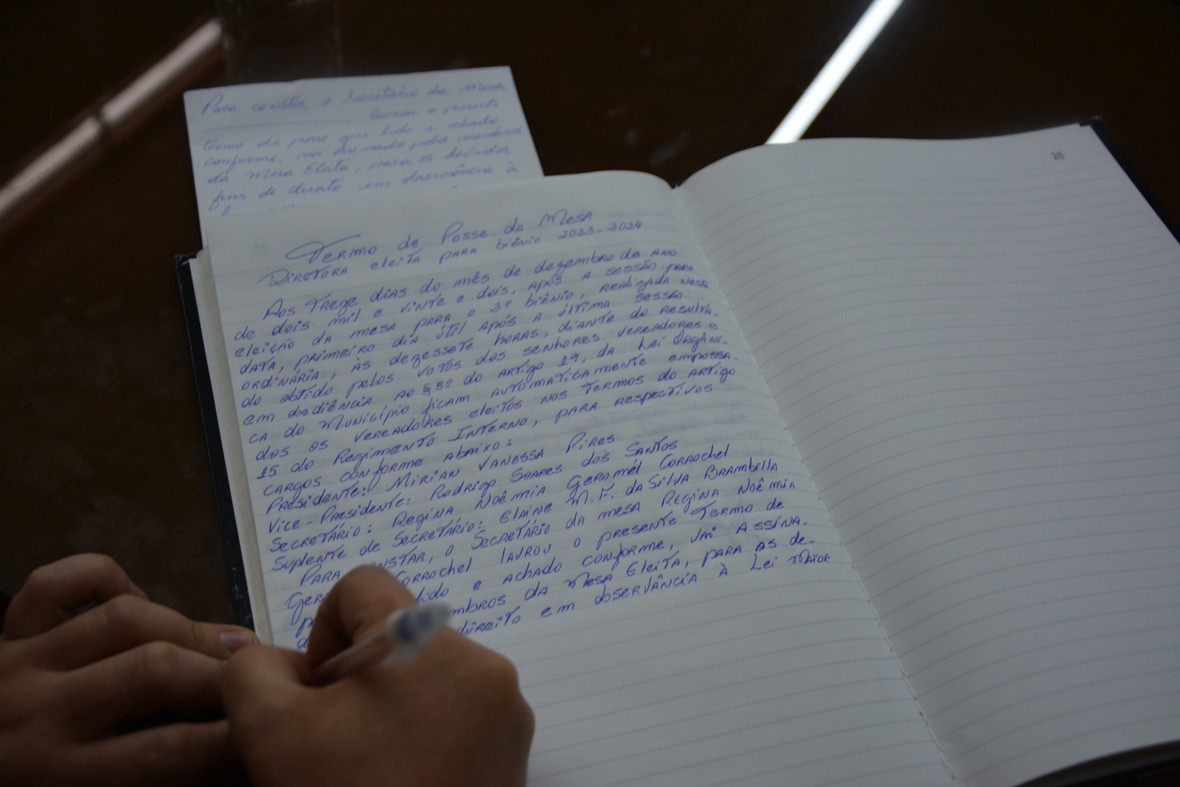 Para constar, o Secretário da Mesa
lavrou o presente
termo de posse que lido e achado
conforme, vai assinado pelos membros
da Mesa Eleita, para os devidos
fins de direito em observância à
Termo de Posse da Mesa
Diretora eleita para biênio 2023-2024
Aos treze dias do mês de dezembro do ano
de dois mil e vinte e dois, após a sessão para
eleição da mesa para o 2º biênio, realizada nesta
data, primeiro dia útil após a última sessão
ordinária, às dezessete horas, diante do resulta-
do obtido pelos votos dos senhores vereadores e
em obediência ao § 5º do artigo 19, da Lei Orgâni-
ca do Município ficam automaticamente empossa-
dos os vereadores eleitos nos termos do artigo
15 do Regimento Interno, para respectivos
cargos conforme abaixo:
Presidente: Mirian Vanessa Pires
Vice-Presidente: Rodrigo Soares dos Santos
Secretário: Regina Noêmia Geromél Corrochel
Suplente de Secretário: Elaine M.F. da Silva Brambilla
Para constar, o Secretário da mesa Regina Noêmia
Ger Corrochel lavrou o presente Termo de
p lido e achado conforme, vai assina-
mbros da Mesa Eleita, para as de-
direito em observância à Lei Maior
26